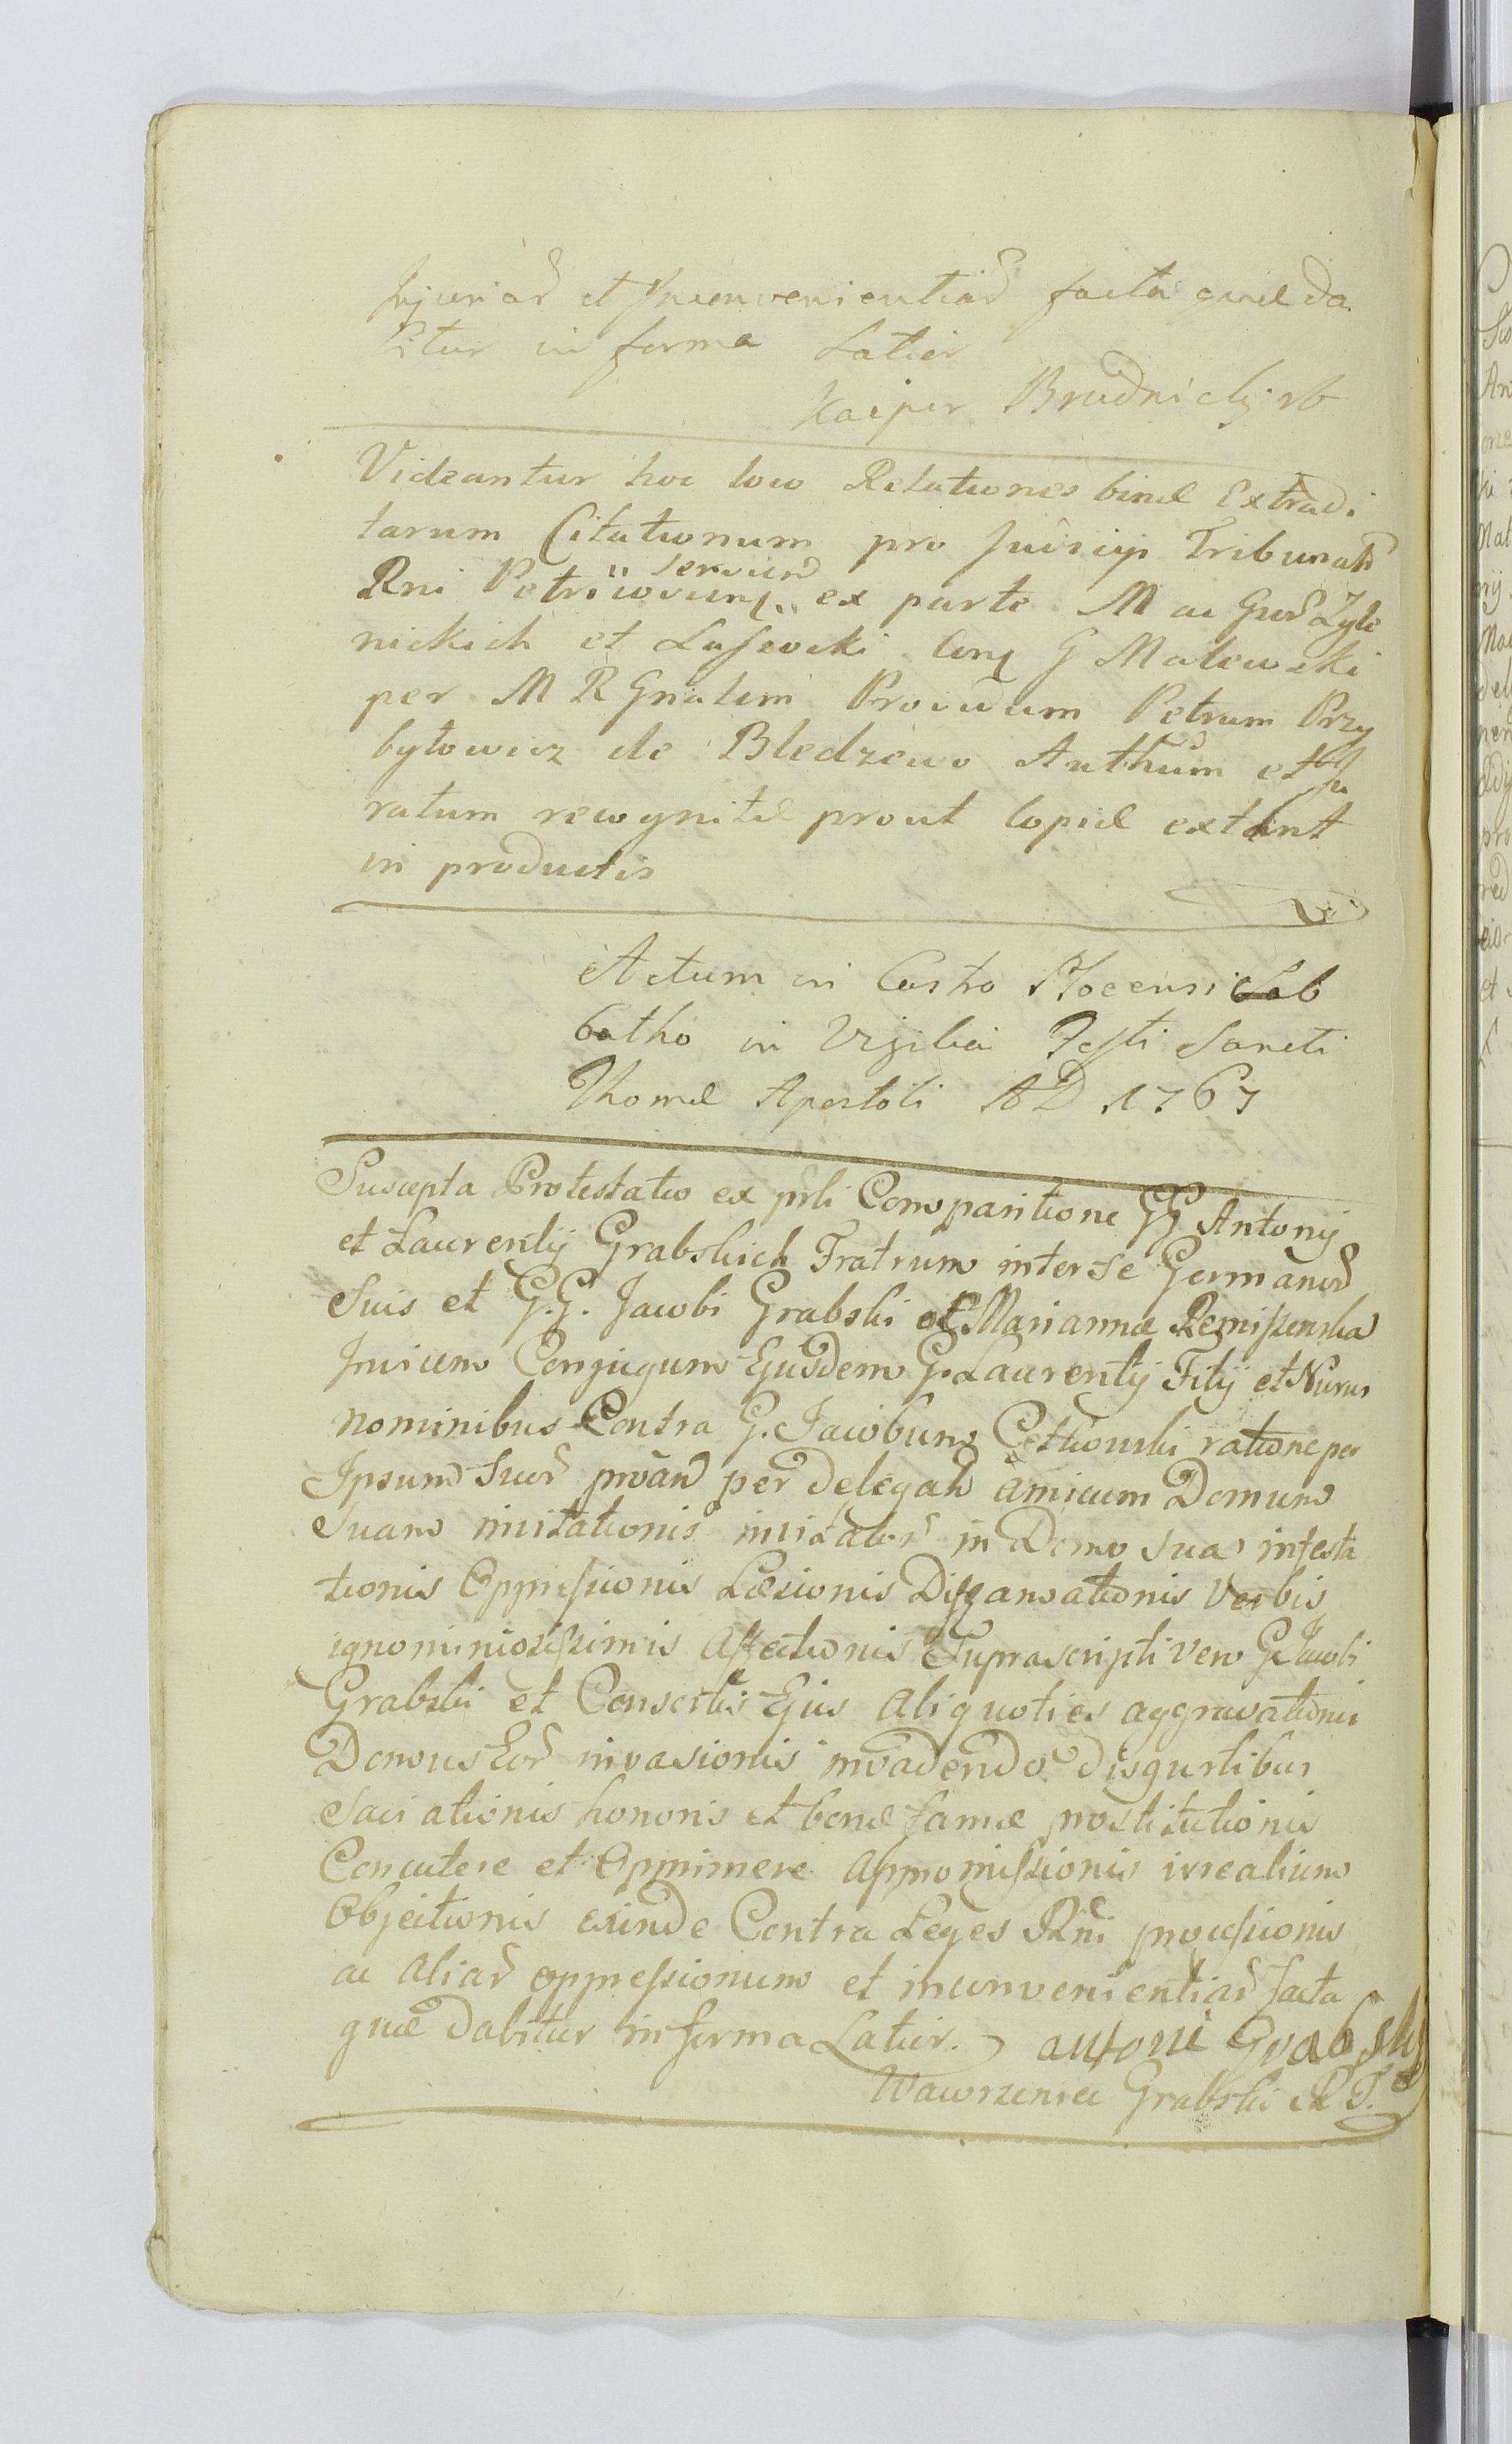 Injuriar et Inconvenientiar facta quæ da
bitur in forma Latior
Kacper Brudnicki
Videantur hoc loco Relationes binæ Extradi
tarum Citationum pro Judicijs Tribunalis
servien
Rni Petricovien ex parte M ac Gnor Zyle
nickich et Lasewski Con G Malewski
per M R Gnalem Providum Petrum Przy
byłowicz de Bledzewo Authum et Ju
ratum recognitæ prout Copiæ extant
in productis
Actum in Castro Plocensi Sab
batho in Vigilia Festi Sancti
Thomæ Apostoli AD 1767
Suscepta Protestatio ex prli Comparitione GG Antonij
et Laurentij Grabskich Fratrum inter se Germanor
Suis et G.G. Jacobi Grabski et Mariannæ
Invicem Conjugum Ejusdem G. Laurentij Filij et Nurus
nominibus Contra G. Jacobum ratione per
Ipsum Suor per delegat amicum Domum
Suam invitationis invitator in Domo sua infesta
tionis Oppressionis Læsionis Diffamationis Verbis
ignominiosissimis Affectionis Suprascripti vero G. Jacobi
Grabski et Consortis Ejus aliquoties aggravationis
Domus Eor invasionis invadendo disgustibus
Saciationis honoris et bonæ famæ prostitutionis
Concutere et Opprimere appromissionis irrealium
Objectionis exinde Contra Leges Rni processionis
ac aliar oppressionum et inconvenientiar facta
quæ dabitur in forma Latior. antoni Grabsky
Wawrzeniec Grabski